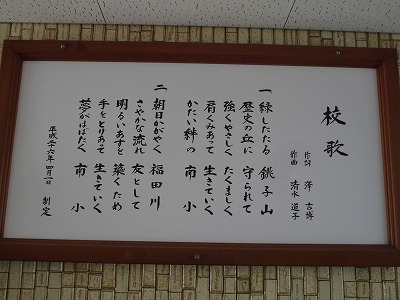 校歌
作詞 澤 吉博
作曲 清水 道子
一 緑したたる 銚子山
歴史の丘に 守られて
強くやさしく たくましく
肩くみあって 生きていく
かたい絆の 南 小
二 朝日かがやく 福田川
さやかな流れ 友として
明るいあすを 築くため
手をとりあって 生きていく
夢がはばたく 南 小
平成二十六年 四月一日 制定